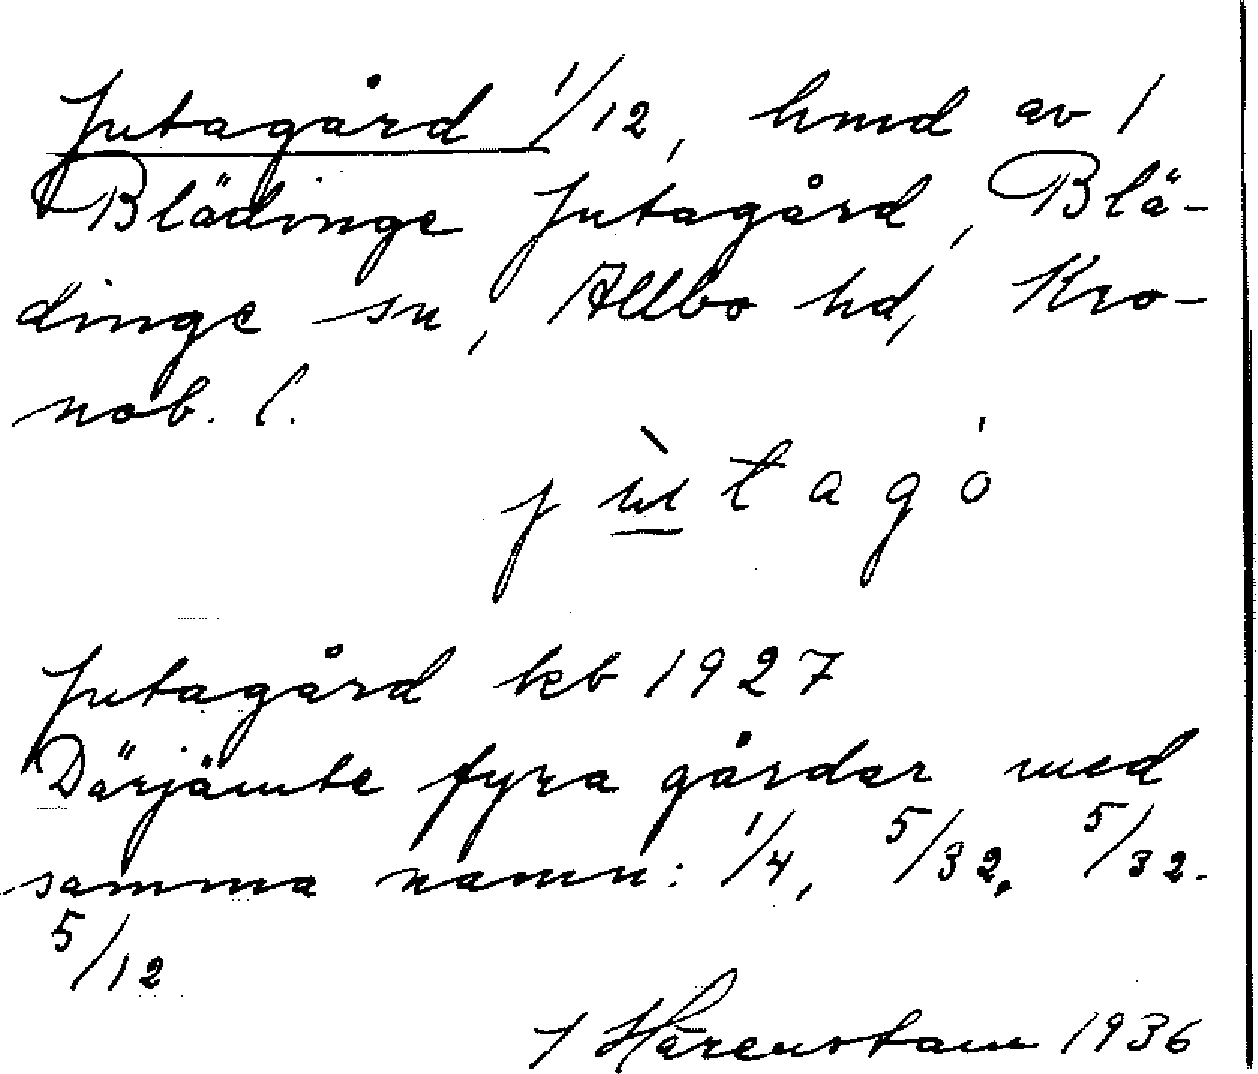 Jutagård 1/12, hmd av 1
Blädinge Jutagård, Blä-
dinge sn, Allbo hd, Kro-
nob. l.
j ù̲ t a g ó
Jutagård kb 1927
Därjämte fyra gårdar med
samma namn: 1/4, 5/32, 5/32.
5/12
J Härenstam 1936